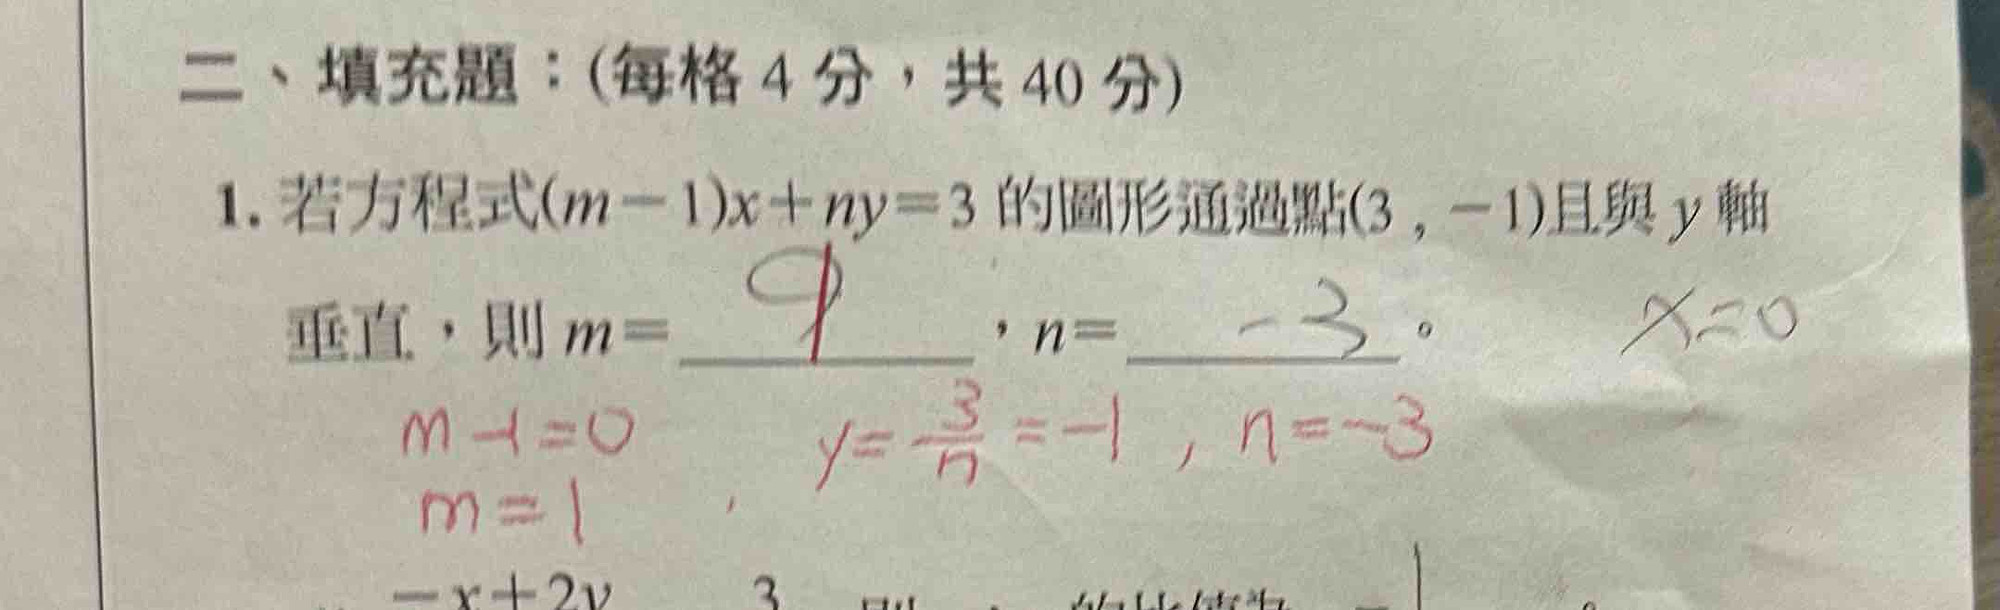 二、填充題：(每格 4 分，共 40 分)
1. 若方程式(m－1)x＋ny＝3 的圖形通過點(3 , －1)且與 y 軸
垂直，則 m＝ ，n＝ -3 。 x=0
m-1=0 y=3/n=-1 , n=-3
m=1
－x＋2y 3